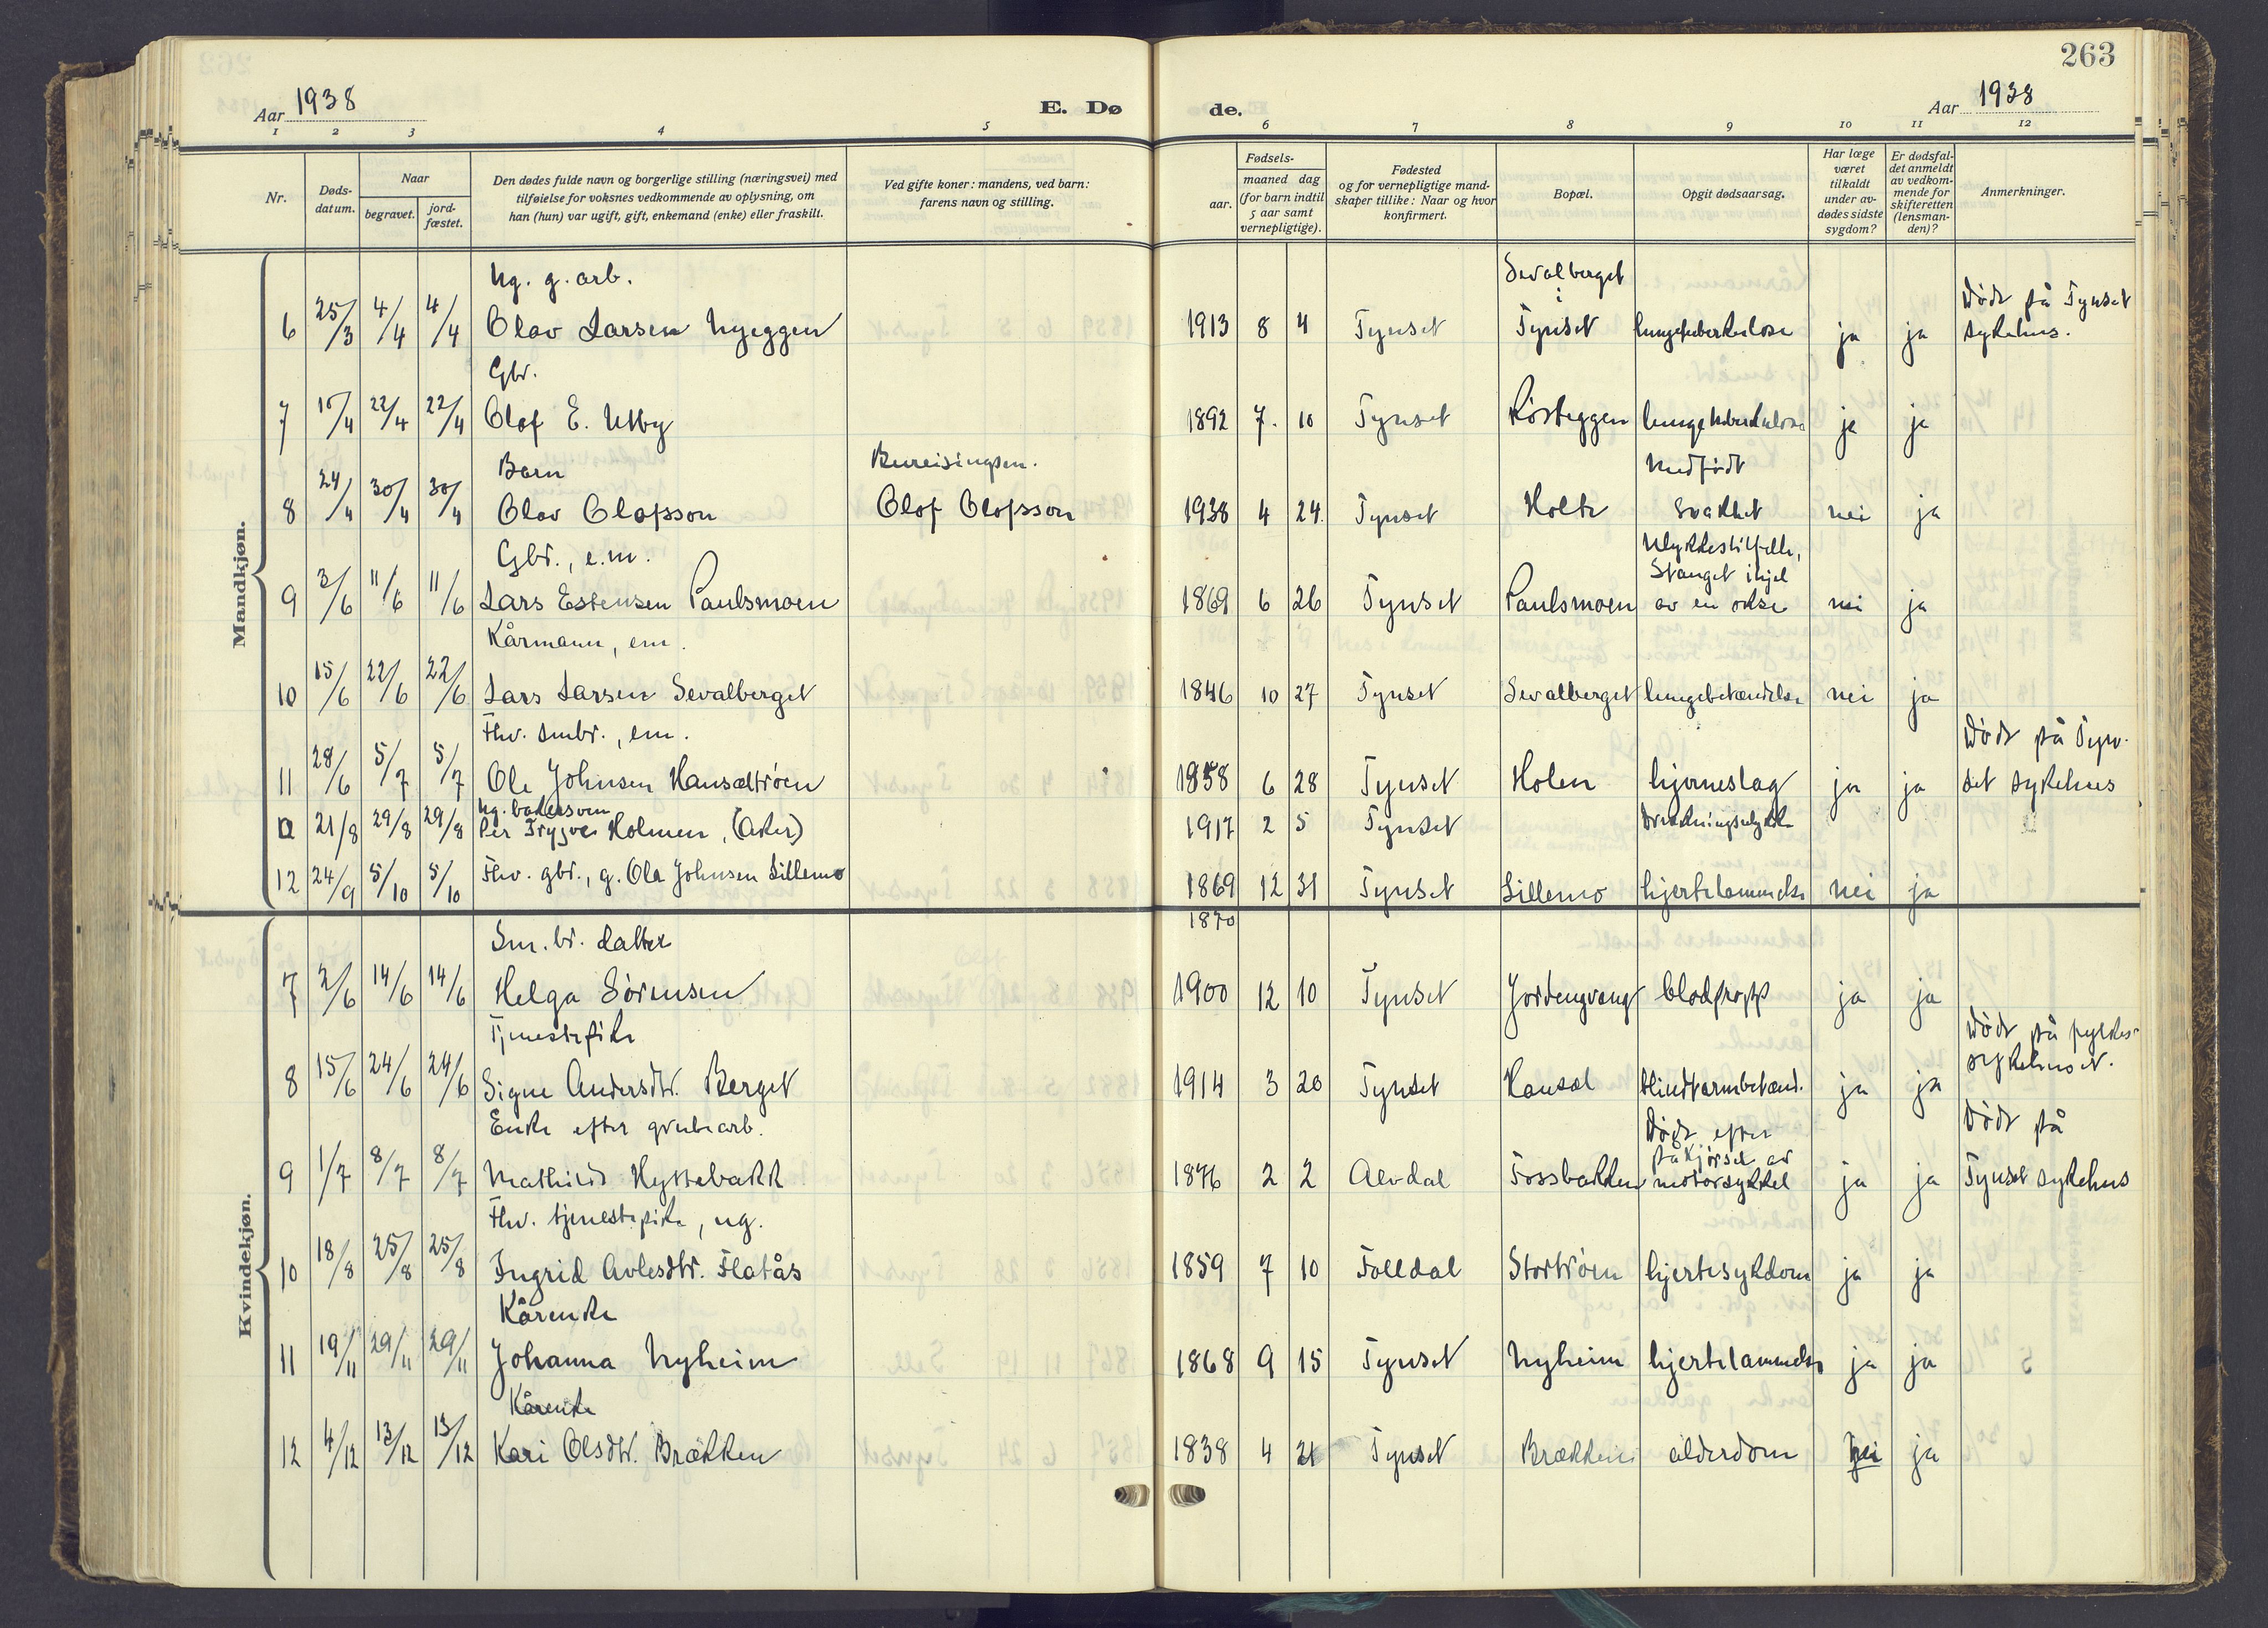 263
Aar 1938
E. Dø
de.
Aar 1938
1 2 3 4 5 6 7 8 9 10 11 12
Nr.
Døds-
datum.
Naar
begravet.
jord-
fæstet.
Den dødes fulde navn og borgerlige stilling (næringsvei) med
tilføielse for voksnes vedkommende av oplysning, om
han (hun) var ugift, gift, enkemand (enke) eller fraskilt.
Ved gifte koner: mandens, ved barn:
farens navn og stilling.
Fødsels-
aar.
maaned dag
(for barn indtil
5 aar samt
vernepligtige).
Fødested
og for vernepligtige mand-
skaper tillike: Naar og hvor
konfirmert.
Bopæl.
Opgit dødsaarsag.
Har læge
været
tilkaldt
under av-
dødes sidste
sygdom?
Er dødsfal-
det anmeldt
av vedkom-
mende for
skifteretten
(lensman-
den)?
Anmerkninger.
Mandkjøn.
Ug. g. arb. Sevalberget
i Døde på Tynset
6 25/3 4/4 4/4 Olav Larsen Nyeggen 1913 8 4 Tynset Tynset lungetuberkulose ja ja sykehus.
Gbr.
7 15/4 22/4 22/4 Olof E. Utby 1892 7. 10 Tynset Rösteggen lungetuberkulose ja ja
Barn Bureisingsm. Medfødt
8 24/4 30/4 30/4 Olav Olofsson Olof Olofsson 1938 4 24. Tynset Holte svakhet nei ja
Gbr., e.m. Ulykkestilfelle,
Stanget ihjel
9 3/6 11/6 11/6 Lars Estensen Paulsmoen 1869 6 26 Tynset Paulsmoen av en okse nei ja
Kårmann, em.
10 15/6 22/6 22/6 Lars Larsen Sevalberget 1846 10 27 Tynset Sevalberget lungebetændelse nei ja
Fhv. smbr., em. Døde på Tyn-
11 28/6 5/7 5/7 Ole Johnsen Hansæltrøen 1858 6 28 Tynset Holen hjerneslag ja ja set sykehus
ug. bakersven
a 21/8 29/8 29/8 Per Trygve Holmen, (Aker) 1917 2 5 Tynset Drukningsulykke
12 24/9 5/10 5/10 Fhv. gbr., g. Ola Johnsen Lillemo 1869 12 31 Tynset Lillemo hjertelammelse nei ja
1870
Kvindekjøn.
Sm. br. datter
7 2/6 14/6 14/6 Helga Sørensen 1900 12 10 Tynset Jordengvang blodpropp ja ja
Tjenestepike Døde på fylkes-
8 15/6 24/6 24/6 Signe Andersdtr. Berget 1914 3 20 Tynset Hansæl blindtarmbetænd. ja ja sykehuset.
Enke efter grubearb. Døde efter Døde på
påkjørsel av
9 1/7 8/7 8/7 Mathilde Hyttebakk 1876 2 2 Alvdal Fossbakken motorsykkel ja ja Tynset sykehus
Fhv. tjenestepike, ug.
10 18/8 25/8 25/8 Ingrid Avlesdtr. Flatås 1859 7 10 Folldal Stortrøen hjertesykdom ja ja
Kårenke
11 19/11 29/11 29/11 Johanna Nyheim 1868 9 15 Tynset Nyheim hjertelammelse ja ja
Kårenke
12 4/12 13/12 13/12 Kari Olsdtr. Brækken 1838 4 21 Tynset Brækken alderdom nei ja